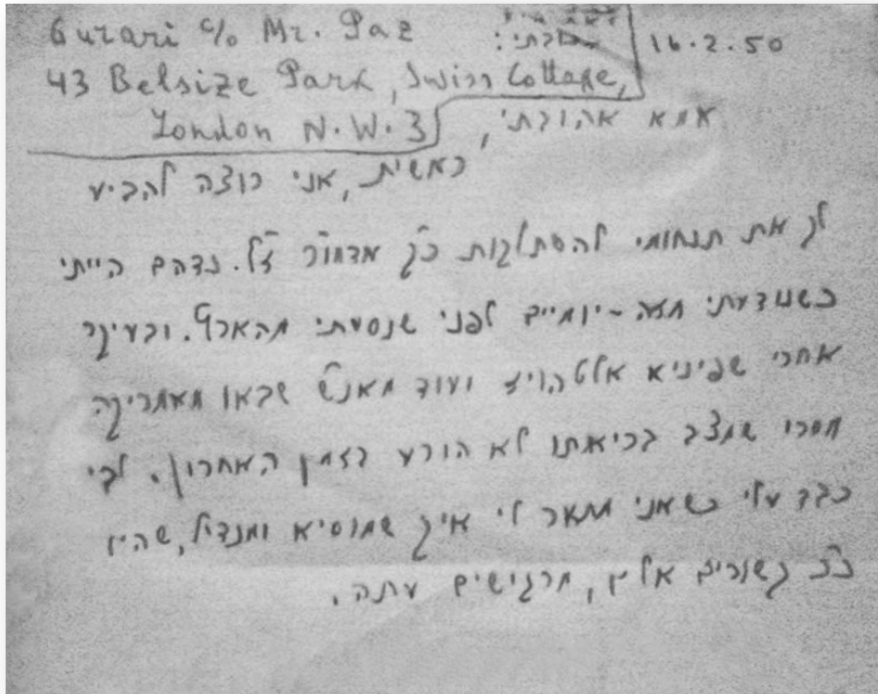 Gurari c/o Mr. Paz
16.2.50
43 Belsize Park, Swiss Cottage,
London N.W.3
אמא אהובתי,
ראשית, אני רוצה להביע
לך את תנחומי להסתלקות כ"ק אדמו"ר ז"ל. נדהם הייתי
כשנודעתי מזה - יומיים לפני שנסעתי מהארץ. ובעיקר
אחרי שפיניא אלטהויז ועוד מאנ"ש שבאו מאמריקה
מסרו שמצב בריאתו לא הורע בזמן האחרון. לבי
כבד עלי כשאני מתאר לי איך שמוסיא ומנדיל, שהיו
כ"כ קשורים אליו, מרגישים עתה.